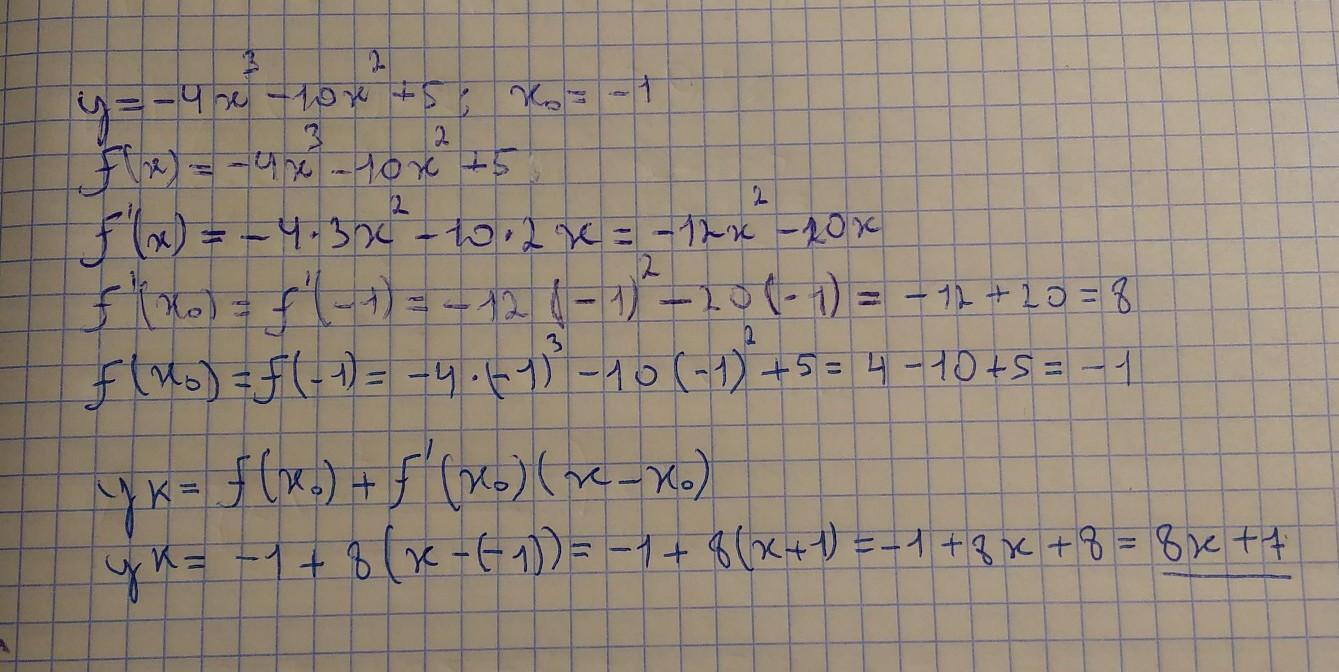 y = -4x³ - 10x² + 5; x₀ = -1
f(x) = -4x³ - 10x² + 5
f'(x) = -4·3x² - 10·2x = -12x² - 20x
f'(x₀) = f'(-1) = -12(-1)² - 20(-1) = -12 + 20 = 8
f(x₀) = f(-1) = -4·(-1)³ - 10(-1)² + 5 = 4 - 10 + 5 = -1
yк = f(x₀) + f'(x₀)(x - x₀)
yк = -1 + 8(x - (-1)) = -1 + 8(x+1) = -1 + 8x + 8 = 8x + 7